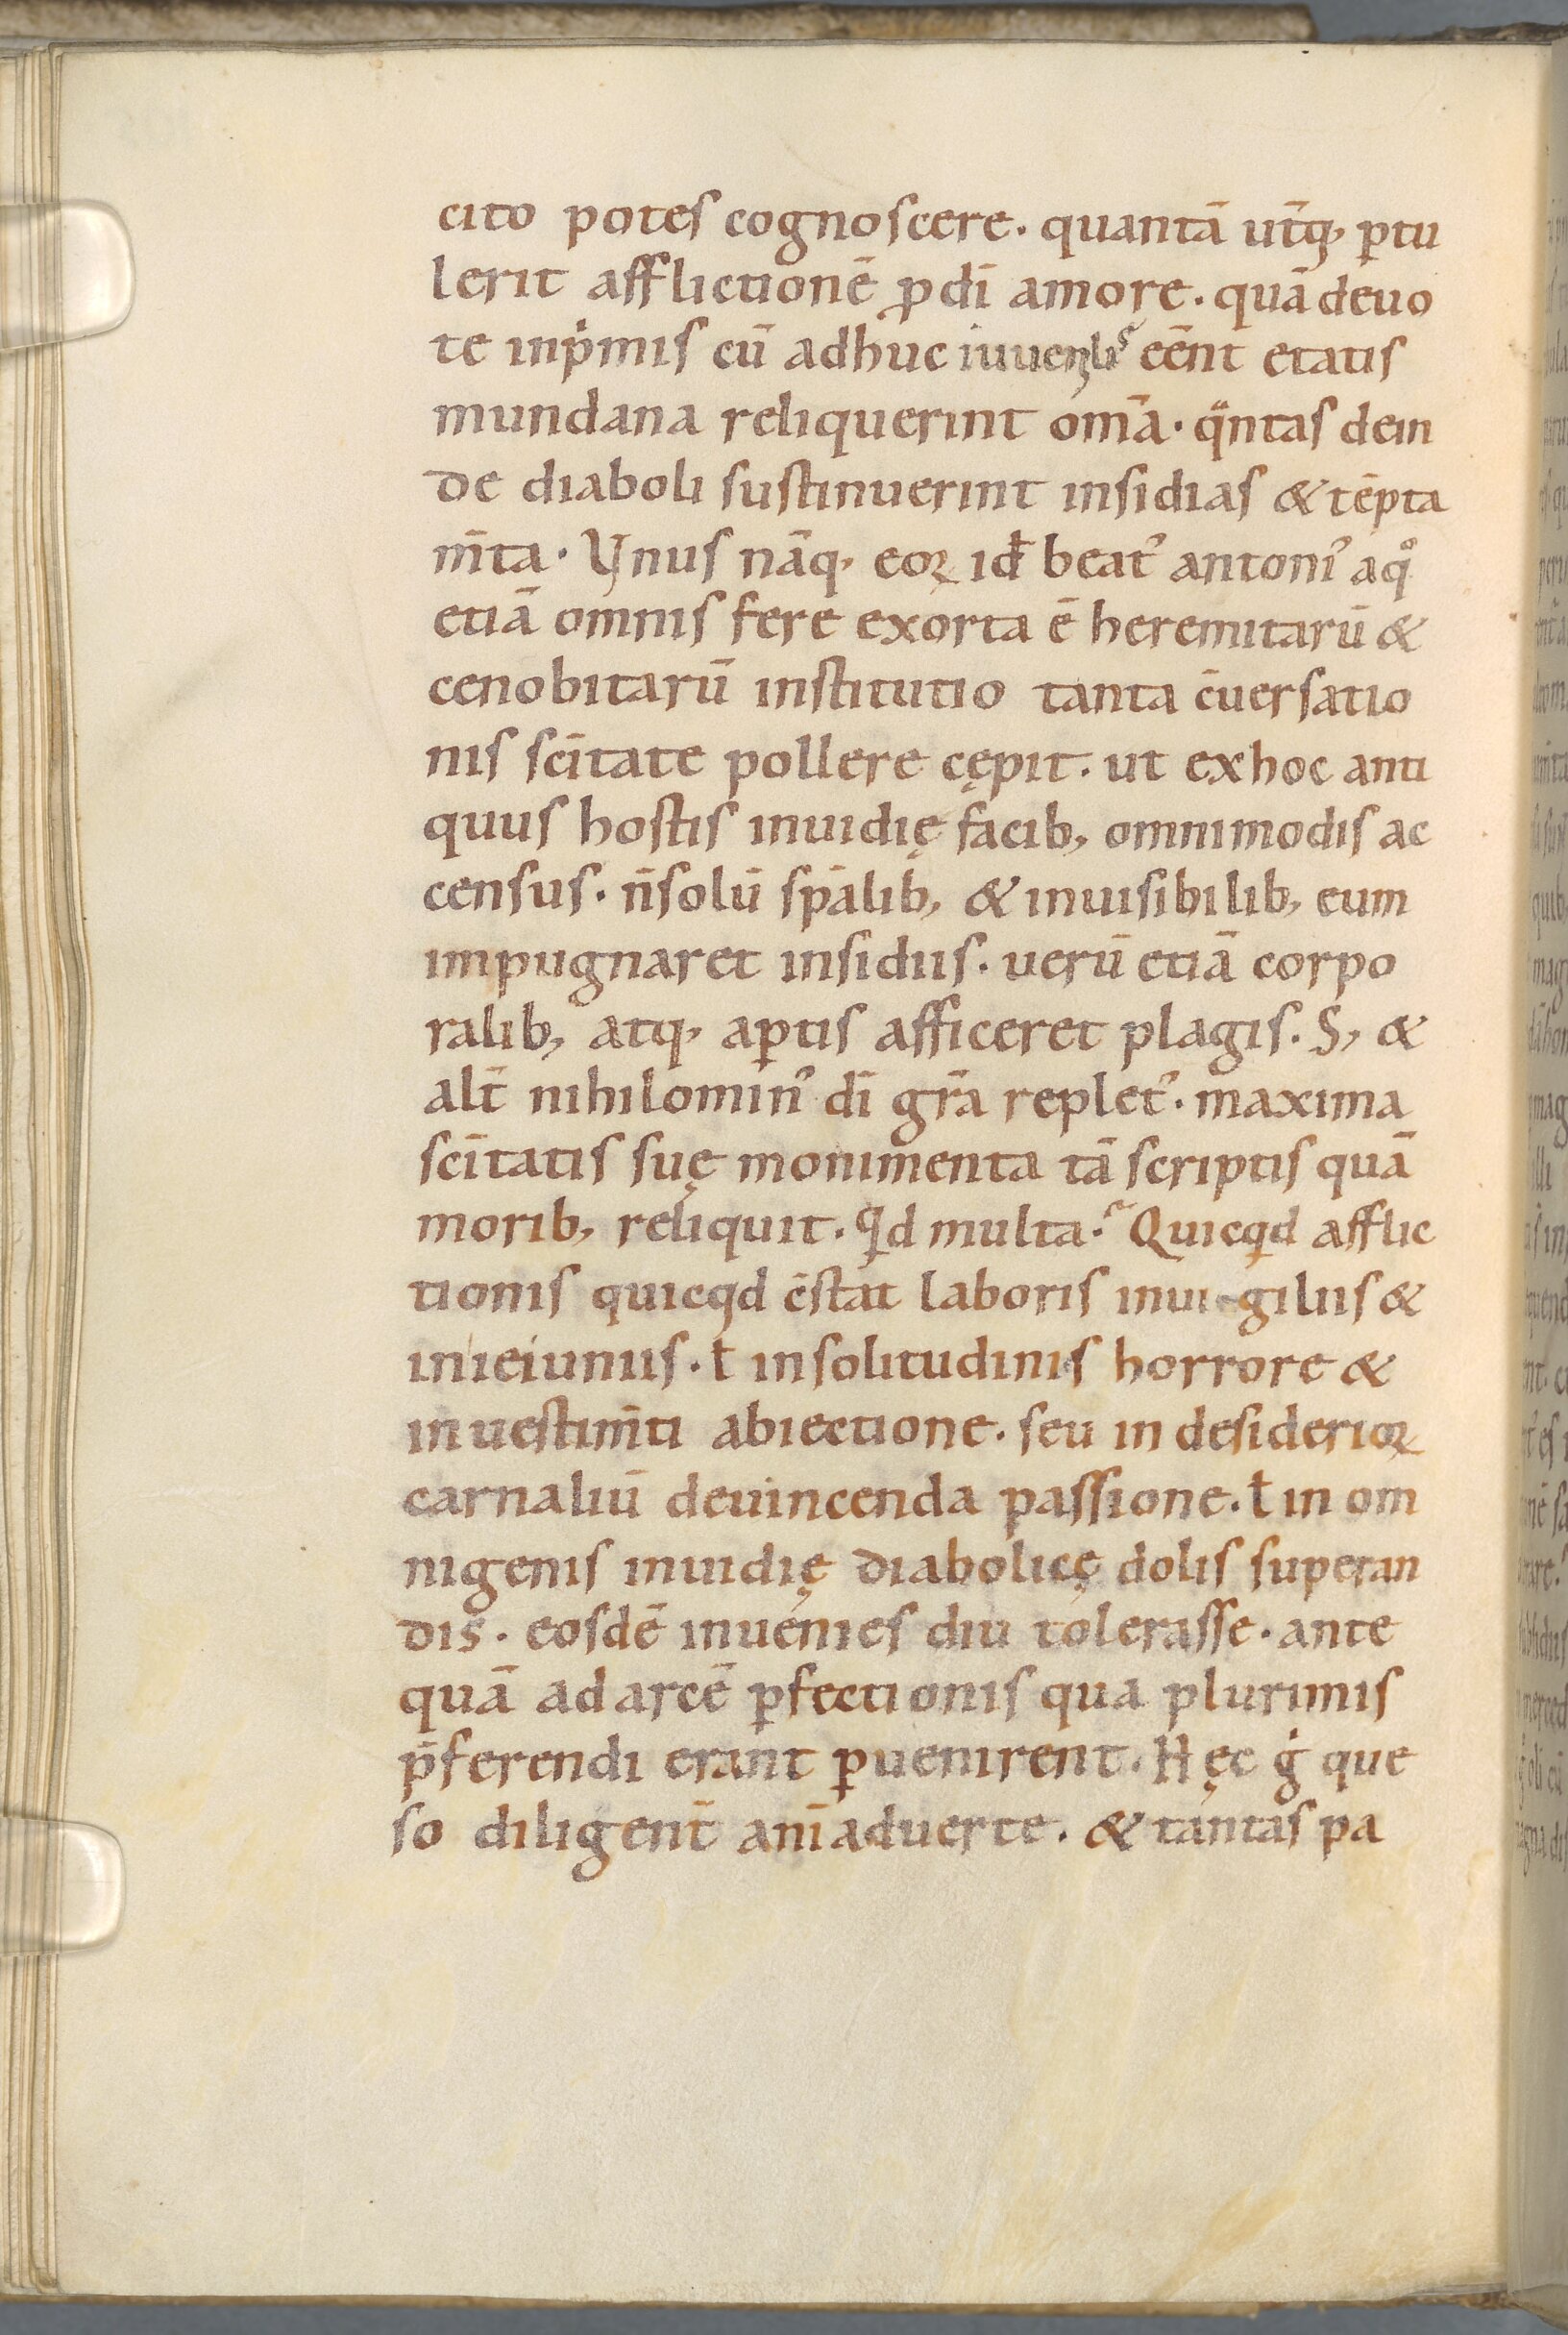 cito potes cognoscere. quantā utq̄, ꝑtu
lerit afflictionē ꝓ dī amore. quā deuo
te inpͥmis cū adhuc iuuenlis eēnt etatis
mundana reliquerint om̄a. qͣntas dein
de diaboli sustinuerint insidias & tēpta
m̄ta. Vnus nāq, eoꝝ id̄ beatꝰ antoniꝰ a qͦ
etiā omnis fere exorta ē heremitarū &
cenobitarū institutio tanta c̄uersatio
nis sc̄itate pollere cępit. ut ex hoc anti
quus hostis inuidię facib, omnimodis ac
census. n̄ solū sp̄alib, & inuisibilib, eum
impugnaret insidiis. uerū etiā corpo
ralib, atq, aꝑtis afficeret plagis. S, &
alt̄ nihilominꝰ dī gr̄a repletꝰ. maxima
sc̄itatis suę monimenta tā scriptis quā
morib, reliquit. Qͥd multa? Quicqͥd afflic
tionis quicqd ēstat laboris in uigiliis &
in ieiuniis. ł in solitudinis horrore &
in uestim̄ti abiectione. seu in desiderioꝝ
carnaliū deuincenda passione. ł in om
nigenis inuidię diabolicę dolis superan
dis. eosdē inuenies diu tolerasse. ante
quā ad arcē ꝑfectionis qua plurimis
p̄ferendi erant ꝑuenirent. Hęc gͥ que
so diligent̄ anīaduerte. & tantas pa